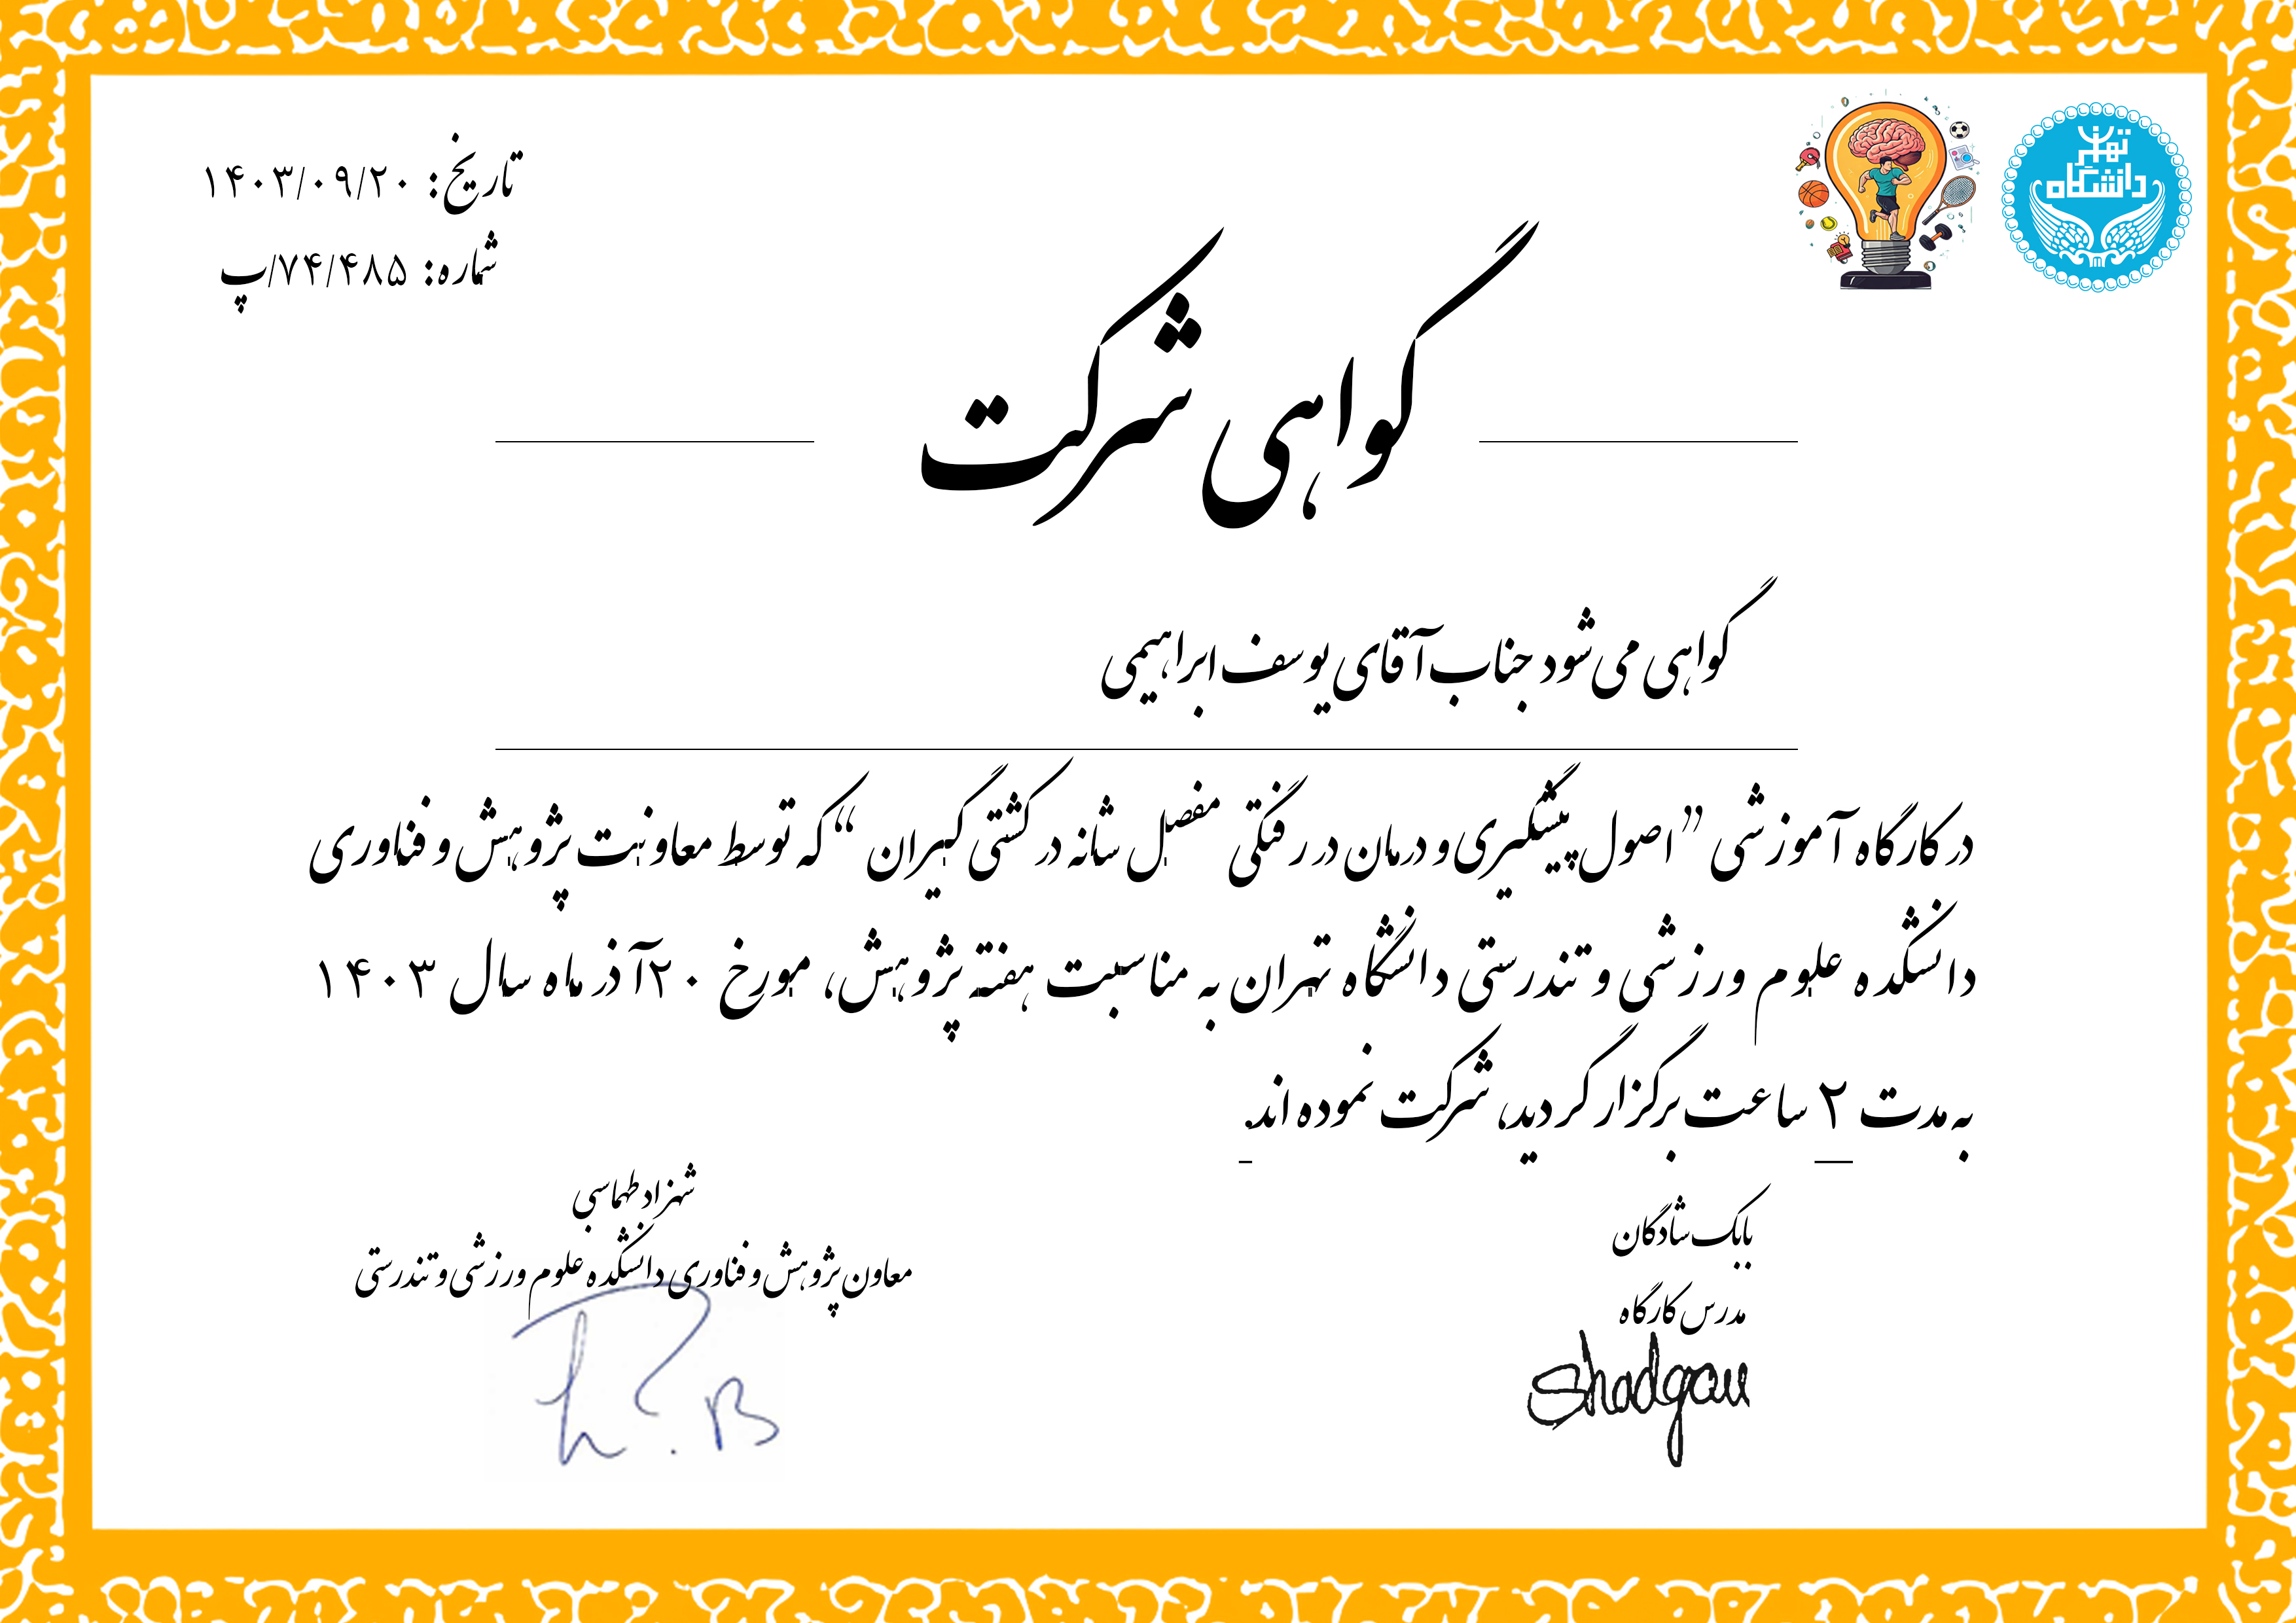 دانشگاه تهران
تاریخ: ۱۴۰۳/۰۹/۲۰
شماره: ۷۴/۴۸۵/پ
گواهی شرکت
گواهی می شود جناب آقای یوسف ابراهیمی
در کارگاه آموزشی ”اصول پیشگیری و درمان در رفتگی مفصل شانه در کشتی گیران “ که توسط معاونت پژوهش و فناوری
دانشکده علوم ورزشی و تندرستی دانشگاه تهران به مناسبت هفته پژوهش، مورخ ۲۰آذر ماه سال ۱۴۰۳
به مدت ۲ ساعت برگزار گردید، شرکت نموده اند.
بابک شادگان
مدرس کارگاه
Shadgan
شهزاد طهماسبی
معاون پژوهش و فناوری دانشکده علوم ورزشی و تندرستی